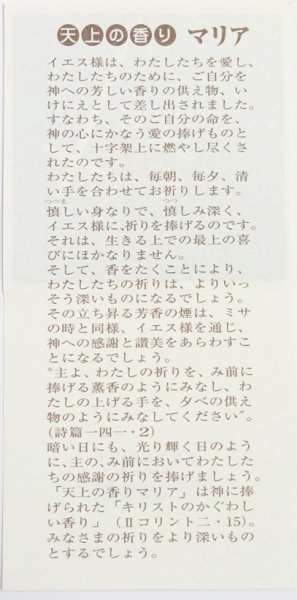 天上の香り マリア
イエス様は、わたしたちを愛し、
わたしたちのために、ご自分を
神への芳しい香りの供え物、い
けにえとして差し出されました。
すなわち、そのご自分の命を、
神の心にかなう愛の捧げものと
して、十字架上に燃やし尽くさ
れたのです。
わたしたちは、毎朝、毎夕、清
い手を合わせてお祈りします。
慎しい身なりで、慎しみ深く、
イエス様に、祈りを捧げるのです。
それは、生きる上での最上の喜
びにほかなりません。
そして、香をたくことにより、
わたしたちの祈りは、よりいっ
そう深いものになるでしょう。
その立ち昇る芳香の煙は、ミサ
の時と同様、イエス様を通じ、
神への感謝と讃美をあらわすこ
とになるでしょう。
〝主よ、わたしの祈りを、み前に
捧げる薫香のようにみなし、わ
たしの上げる手を、夕べの供え
物のようにみなしてください〟。
(詩篇一四一・2)
暗い日にも、光り輝く日のよう
に、主の、み前においてわたした
ちの感謝の祈りを捧げましょう。
「天上の香りマリア」は神に捧
げられた「キリストのかぐわし
い香り」(Ⅱコリント二・15)。
みなさまの祈りをより深いもの
とするでしょう。